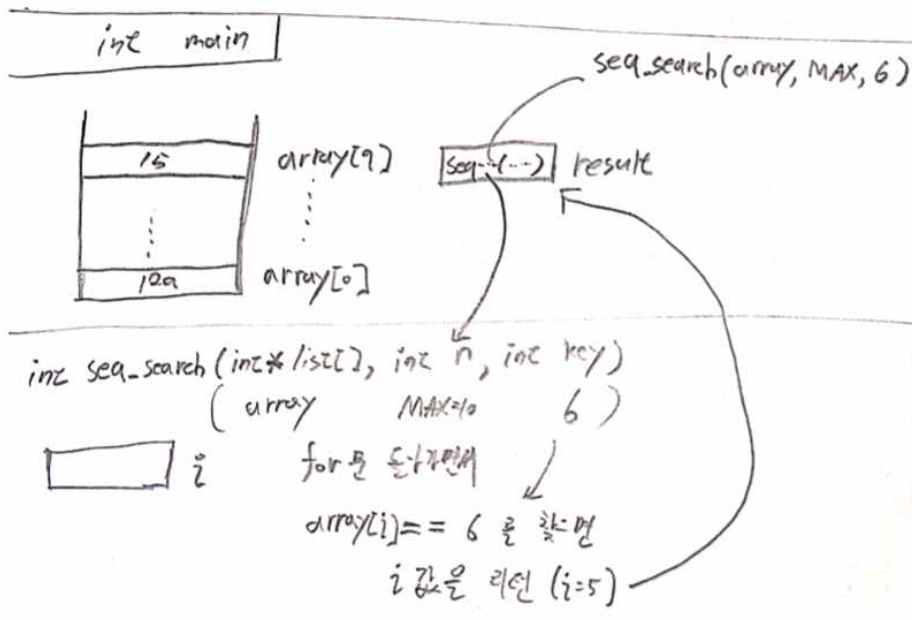 int main
seq_search(array, MAX, 6)
15 array[9] seq…(…) result
array[0]
int seq_search(int* list[], int n, int key)
(array MAX=10 6)
i for문 돌아가면서
array[i]== 6 를 찾으면
i 값을 리턴 (i=5)